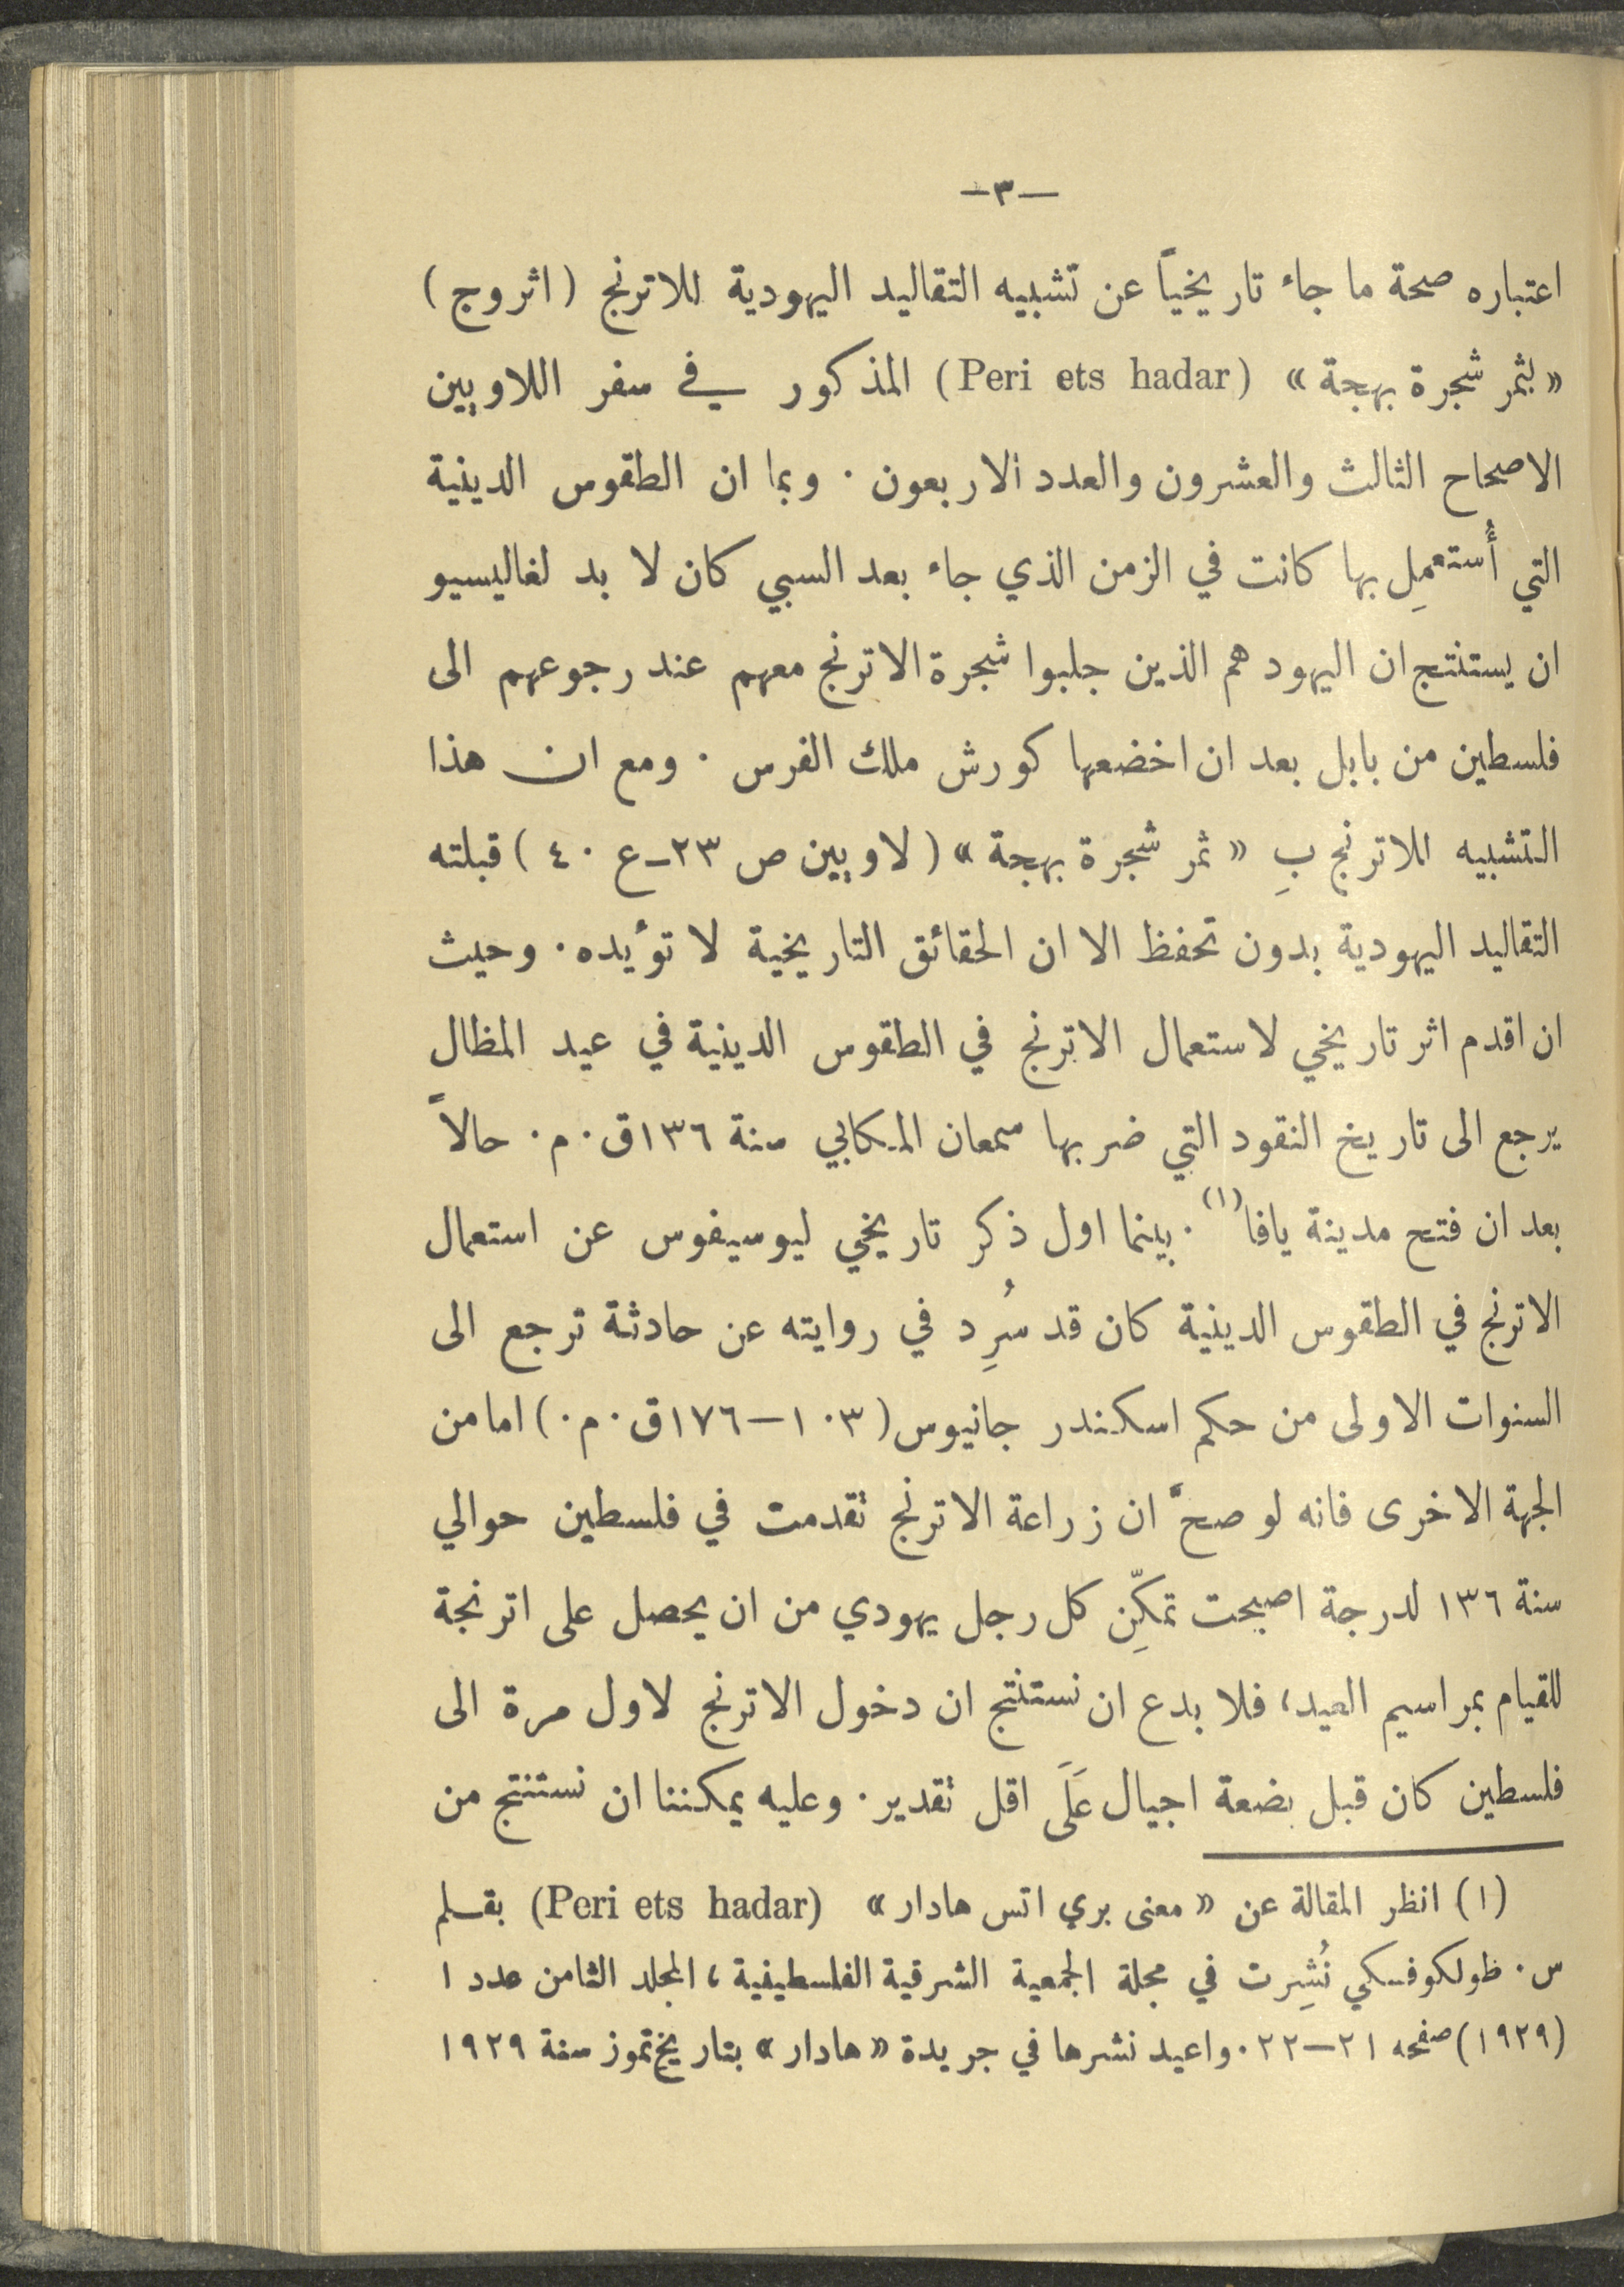 —٣—
اعتباره صحة ما جاء تاريخياً عن تشبيه التقاليد اليهودية للاترنج (اثروج)
«بثمر شجرة بهجة» (Peri ets hadar) المذكور في سفر اللاويين
الاصحاح الثالث والعشرون والعدد الاربعون. وبما ان الطقوس الدينية
التي أُستعمِل بها كانت في الزمن الذي جاء بعد السبي كان لا بد لغاليسيو
ان يستنتج ان اليهود هم الذين جلبوا شجرة الاترنج معهم عند رجوعهم الى
فلسطين من بابل بعد ان اخضعها كورش ملك الفرس. ومع ان هذا
التشبيه للاترنج بِ «ثمر شجرة بهجة» (لاويين ص ٢٣-ع ٤٠) قبلته
التقاليد اليهودية بدون تحفظ الا ان الحقائق التاريخية لا تؤيده. وحيث
ان اقدم اثر تاريخي لاستعمال الاترنج في الطقوس الدينية في عيد المظال
يرجع الى تاريخ النقود التي ضربها سمعان المكابي سنة ١٣٦ق.م. حالاً
بعد ان فتح مدينة يافا(١). بينما اول ذكر تاريخي ليوسيفوس عن استعمال
الاترنج في الطقوس الدينية كان قد سُرِد في روايته عن حادثة ترجع الى
السنوات الاولى من حكم اسكندر جانيوس (١٠٣—١٧٦ق.م.) اما من
الجهة الاخرى فانه لو صحَّ ان زراعة الاترنج تقدمت في فلسطين حوالي
سنة ١٣٦ لدرجة اصبحت تمكِّن كل رجل يهودي من ان يحصل على اترنجة
للقيام بمراسيم العيد، فلا بدع ان نستنتج ان دخول الاترنج لاول مرة الى
فلسطين كان قبل بضعة اجيال عَلَى اقل تقدير. وعليه يمكننا ان نستنتج من
(١) انظر المقالة عن «معنى بري اتس هادار» (Peri ets hadar) بقلم
س. طولكوفسكي نُشِرت في مجلة الجمعية الشرقية الفلسطينية، المجلد الثامن عدد ١
(١٩٢٩) صفحه ٢١—٢٢. واعيد نشرها في جريدة «هادار» بتاريخ تموز سنة ١٩٢٩